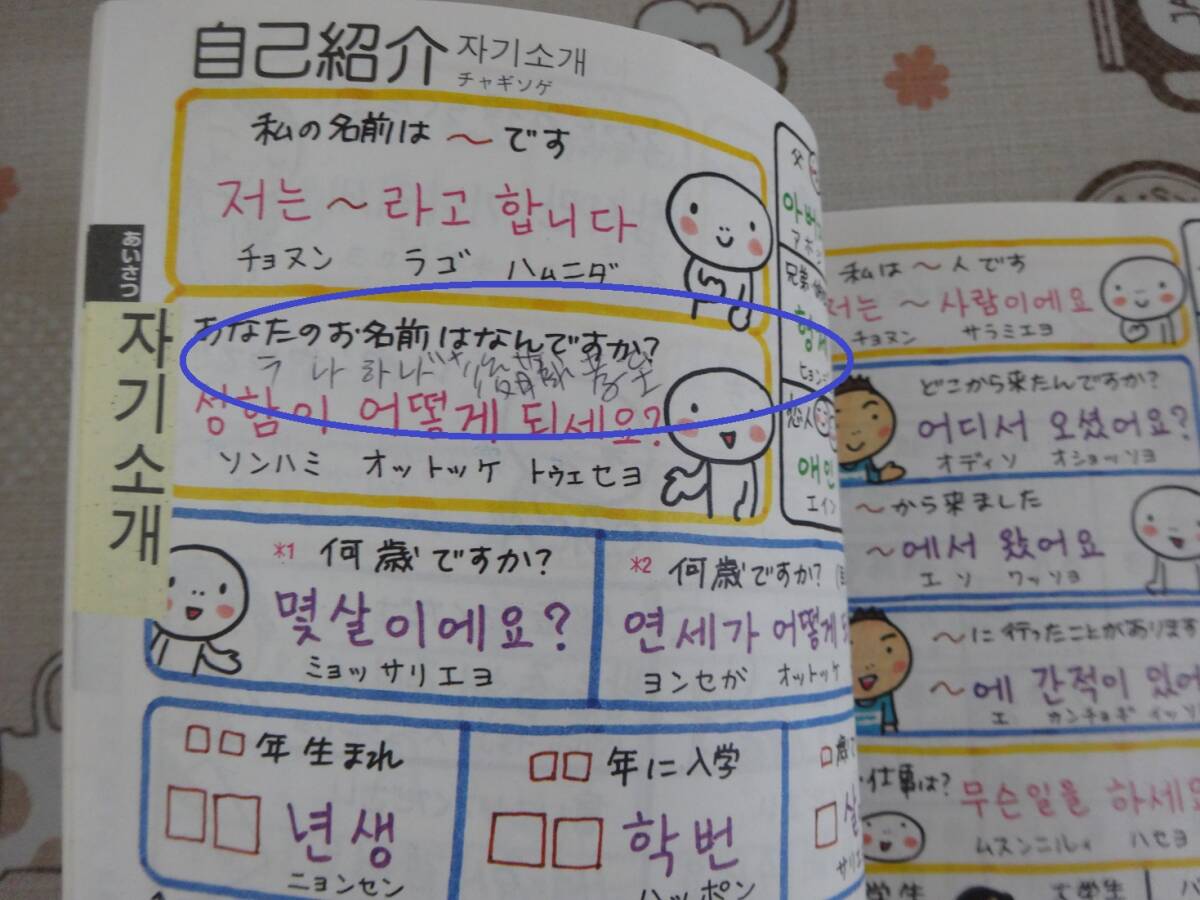 自己紹介 자기소개
チャギソゲ
私の名前は ～です
저는 ～ 라고 합니다
チョヌン ラゴ ハムニダ
あいさつ
자기소개
あなたのお名前はなんですか?
성함이 어떻게 되세요?
ソンハミ オットッケ トゥェセヨ
*1 何歳ですか?
몇살이에요?
ミョッ サリエヨ
*2 何歳ですか?
연세가 어떻게
ヨンセが オットッケ
□□年生まれ
□□년생
ニョンセン
□□年に入学
□□학번
ハッポン
父
아버
アボ
兄弟
형
ヒョン
恋人
애인
エイン
私は ～人です
저는 ～ 사람이에요
チョヌン サラミエヨ
どこから来たんですか?
어디서 오셨어요?
オディソ オショッソヨ
～から来ました
～에서 왔어요
エソ ワッソヨ
～に行ったことがあります
～에 간적이 있어
エ カンチョギ イッソ
仕事は?
무슨일을 하세요
ムスンニルル ハセヨ
大学生